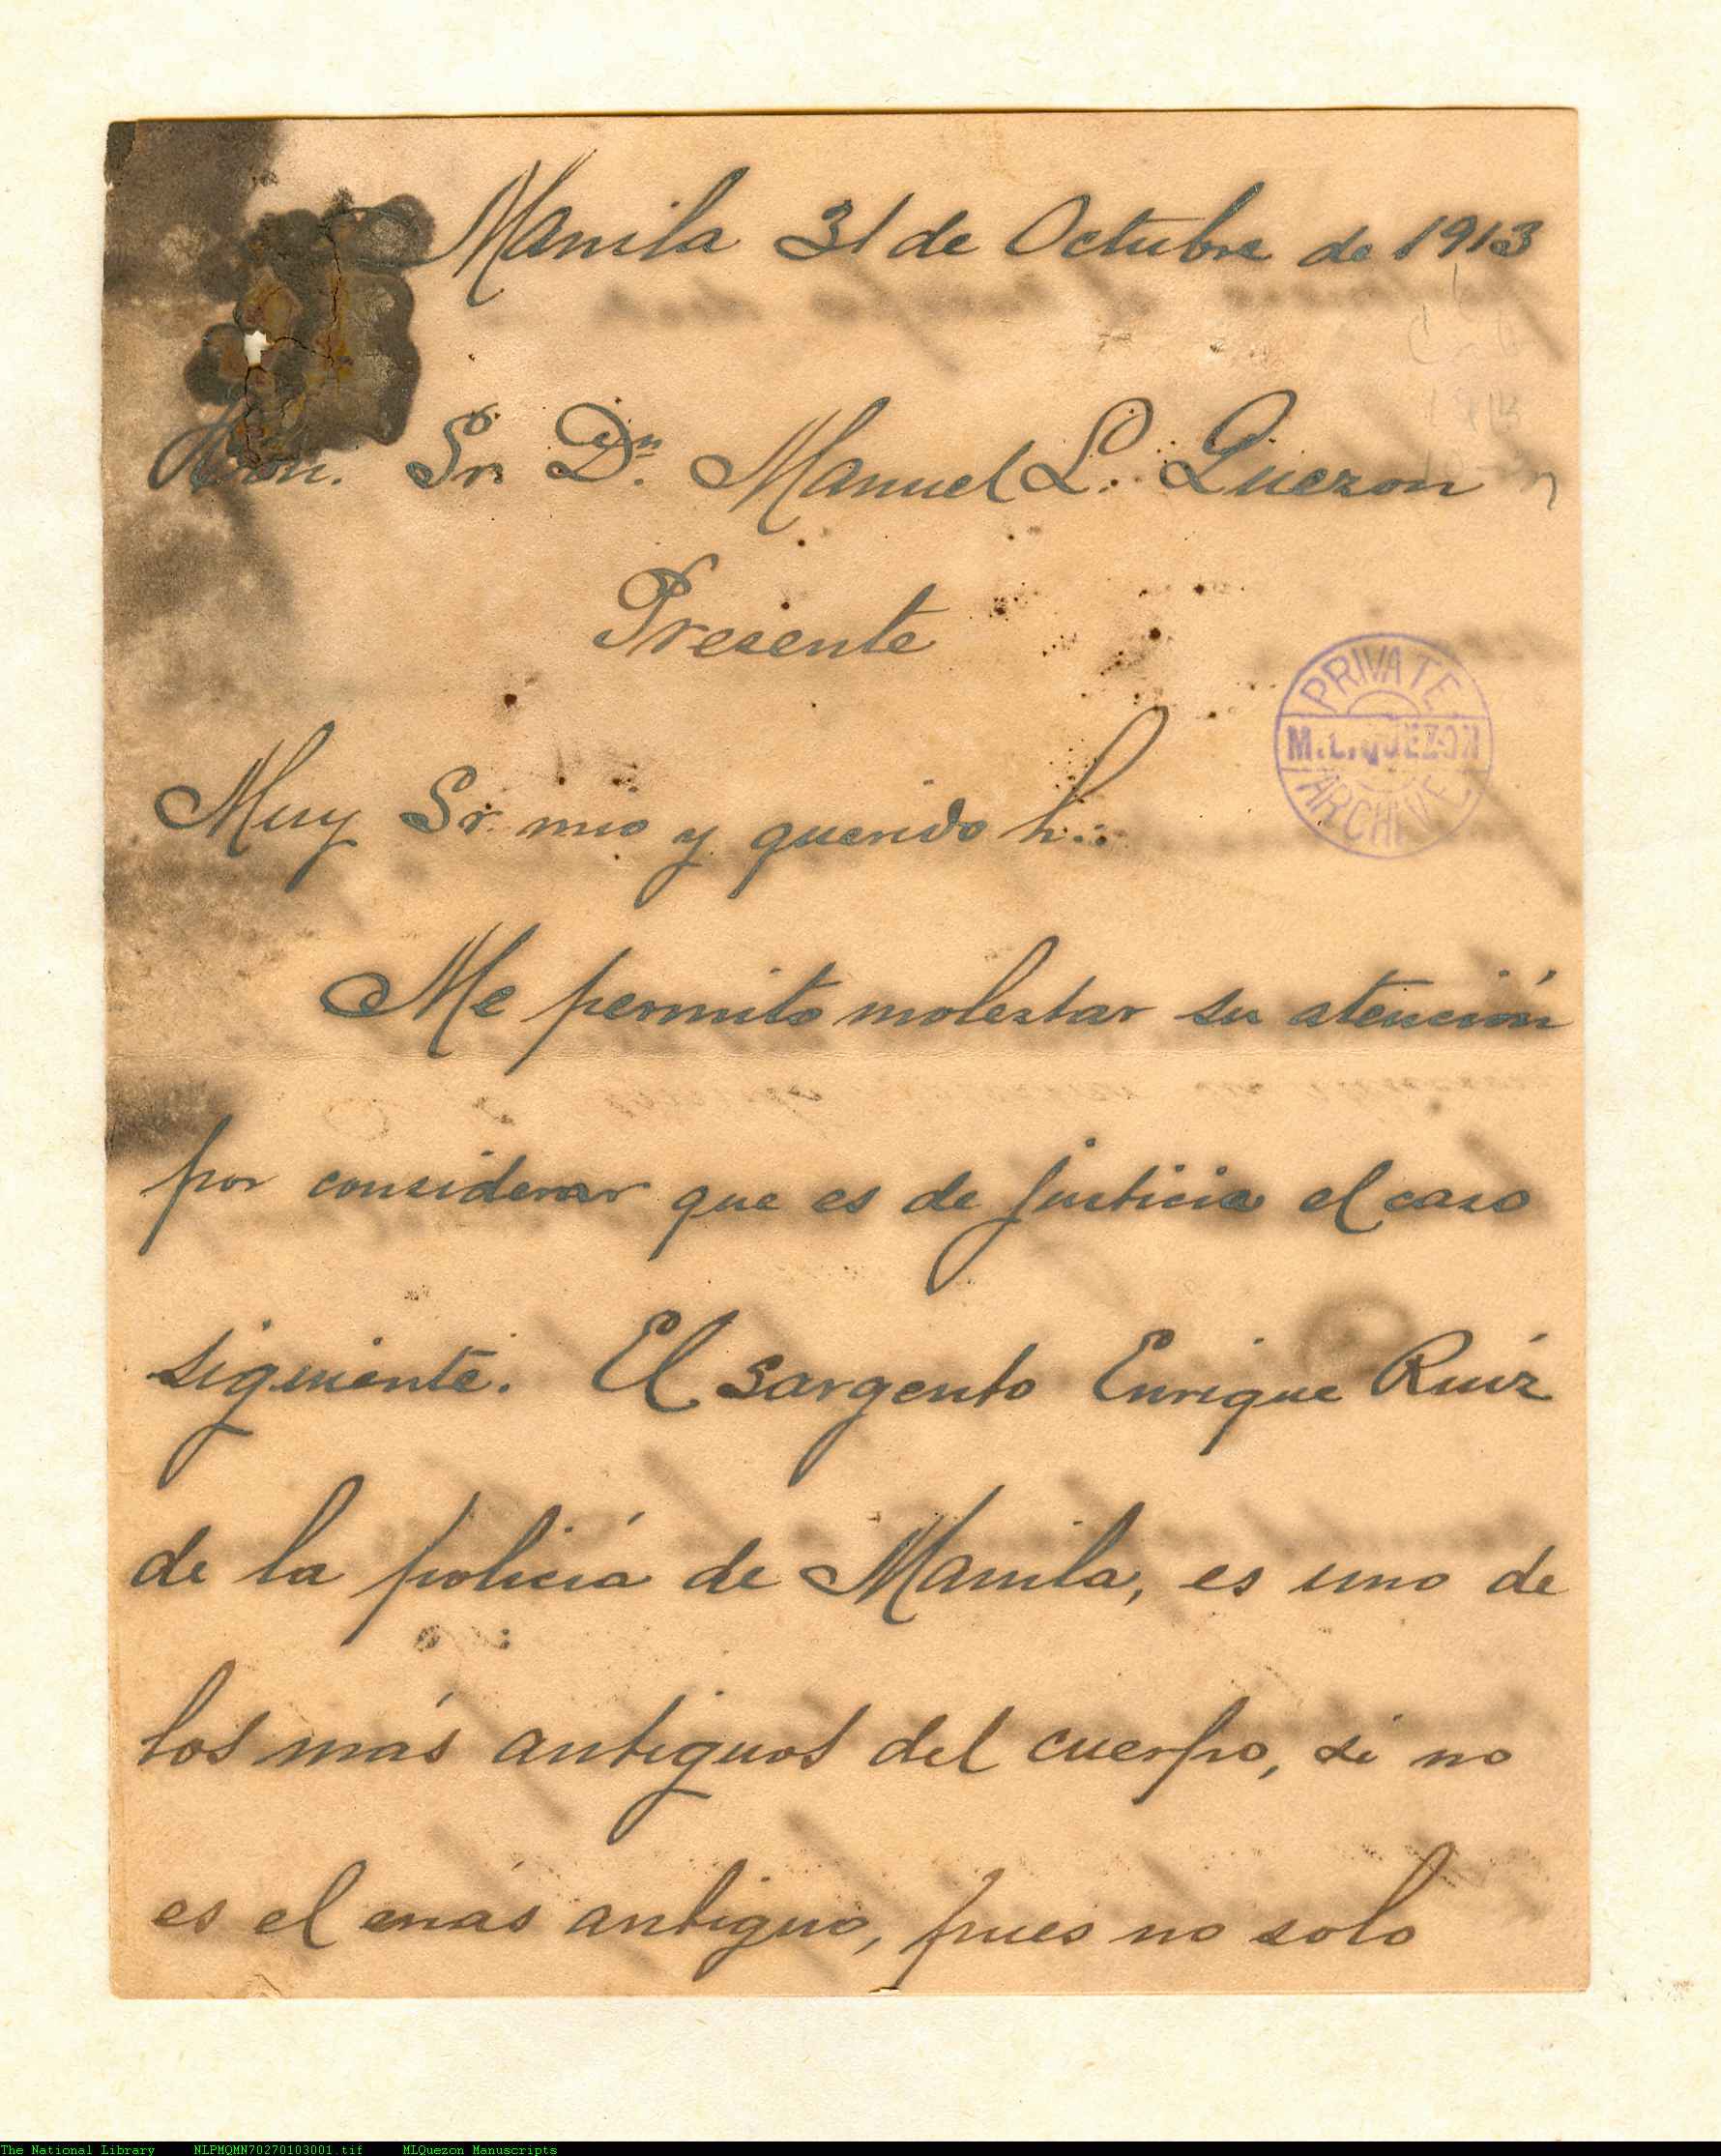 Manila 31 de Octubre de 1913
Hon. Sr. Dn. Manuel L. Quezon
Presente
PRIVATE
M.L.QUEZON
ARCHIVE
Muy Sr. mio y querido h∴
Me permito molestar su atención
por considerar que es de justicia el caso
siguiente. El sargento Enrique Ruiz
de la policía de Manila, es uno de
los más antiguos del cuerpo, si no
es el más antiguo, pues no solo
The National Library NLPMQMN70270103001.tif MLQuezon Manuscripts